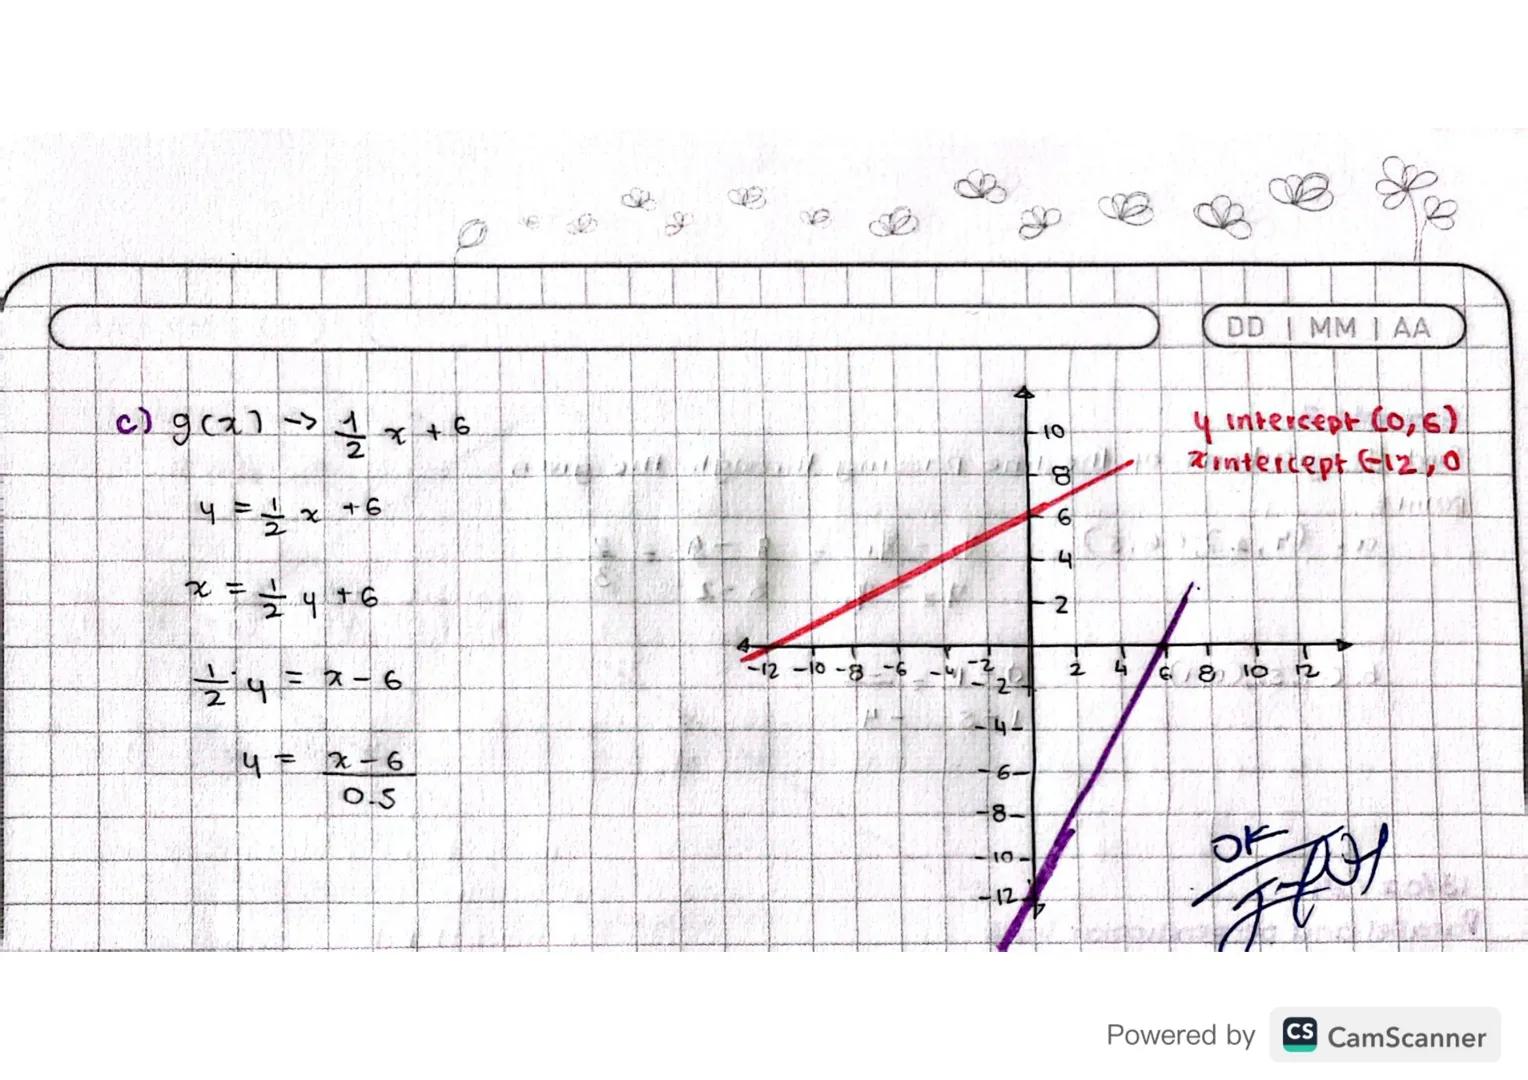 DD | MM | AA
c) g(x) → 1/2 x + 6
y = 1/2 x + 6
x = 1/2 y + 6
1/2 · y = x - 6
y = x - 6
0.5
y intercept (0,6)
x intercept (-12,0
10
8
6
4
2
-12 -10 -8 -6 -4 -2 2 4 6 8 10 12
-2
-4
-6
-8
-10
-12
OK
Powered by CS CamScanner